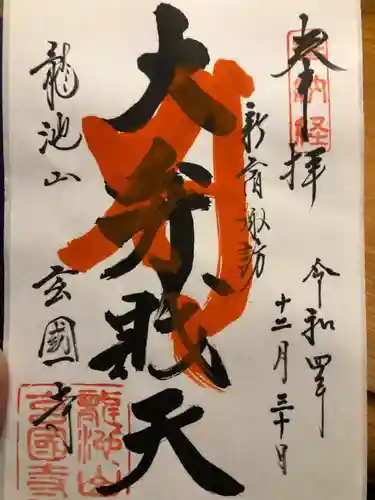 奉拝
奉納経
令和四年
十二月三十日
新宿諏訪
大弁財天
龍池山
玄國寺
龍池山
玄國寺